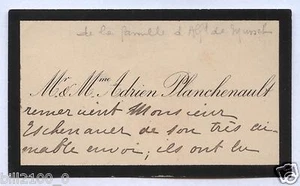 de la famille d'Alf. de Musset
Mr & Mme Adrien Planchenault
remercient Monsieur
Eschenauer de son très ai-
mable envoi; ils ont lu
bill2100_0